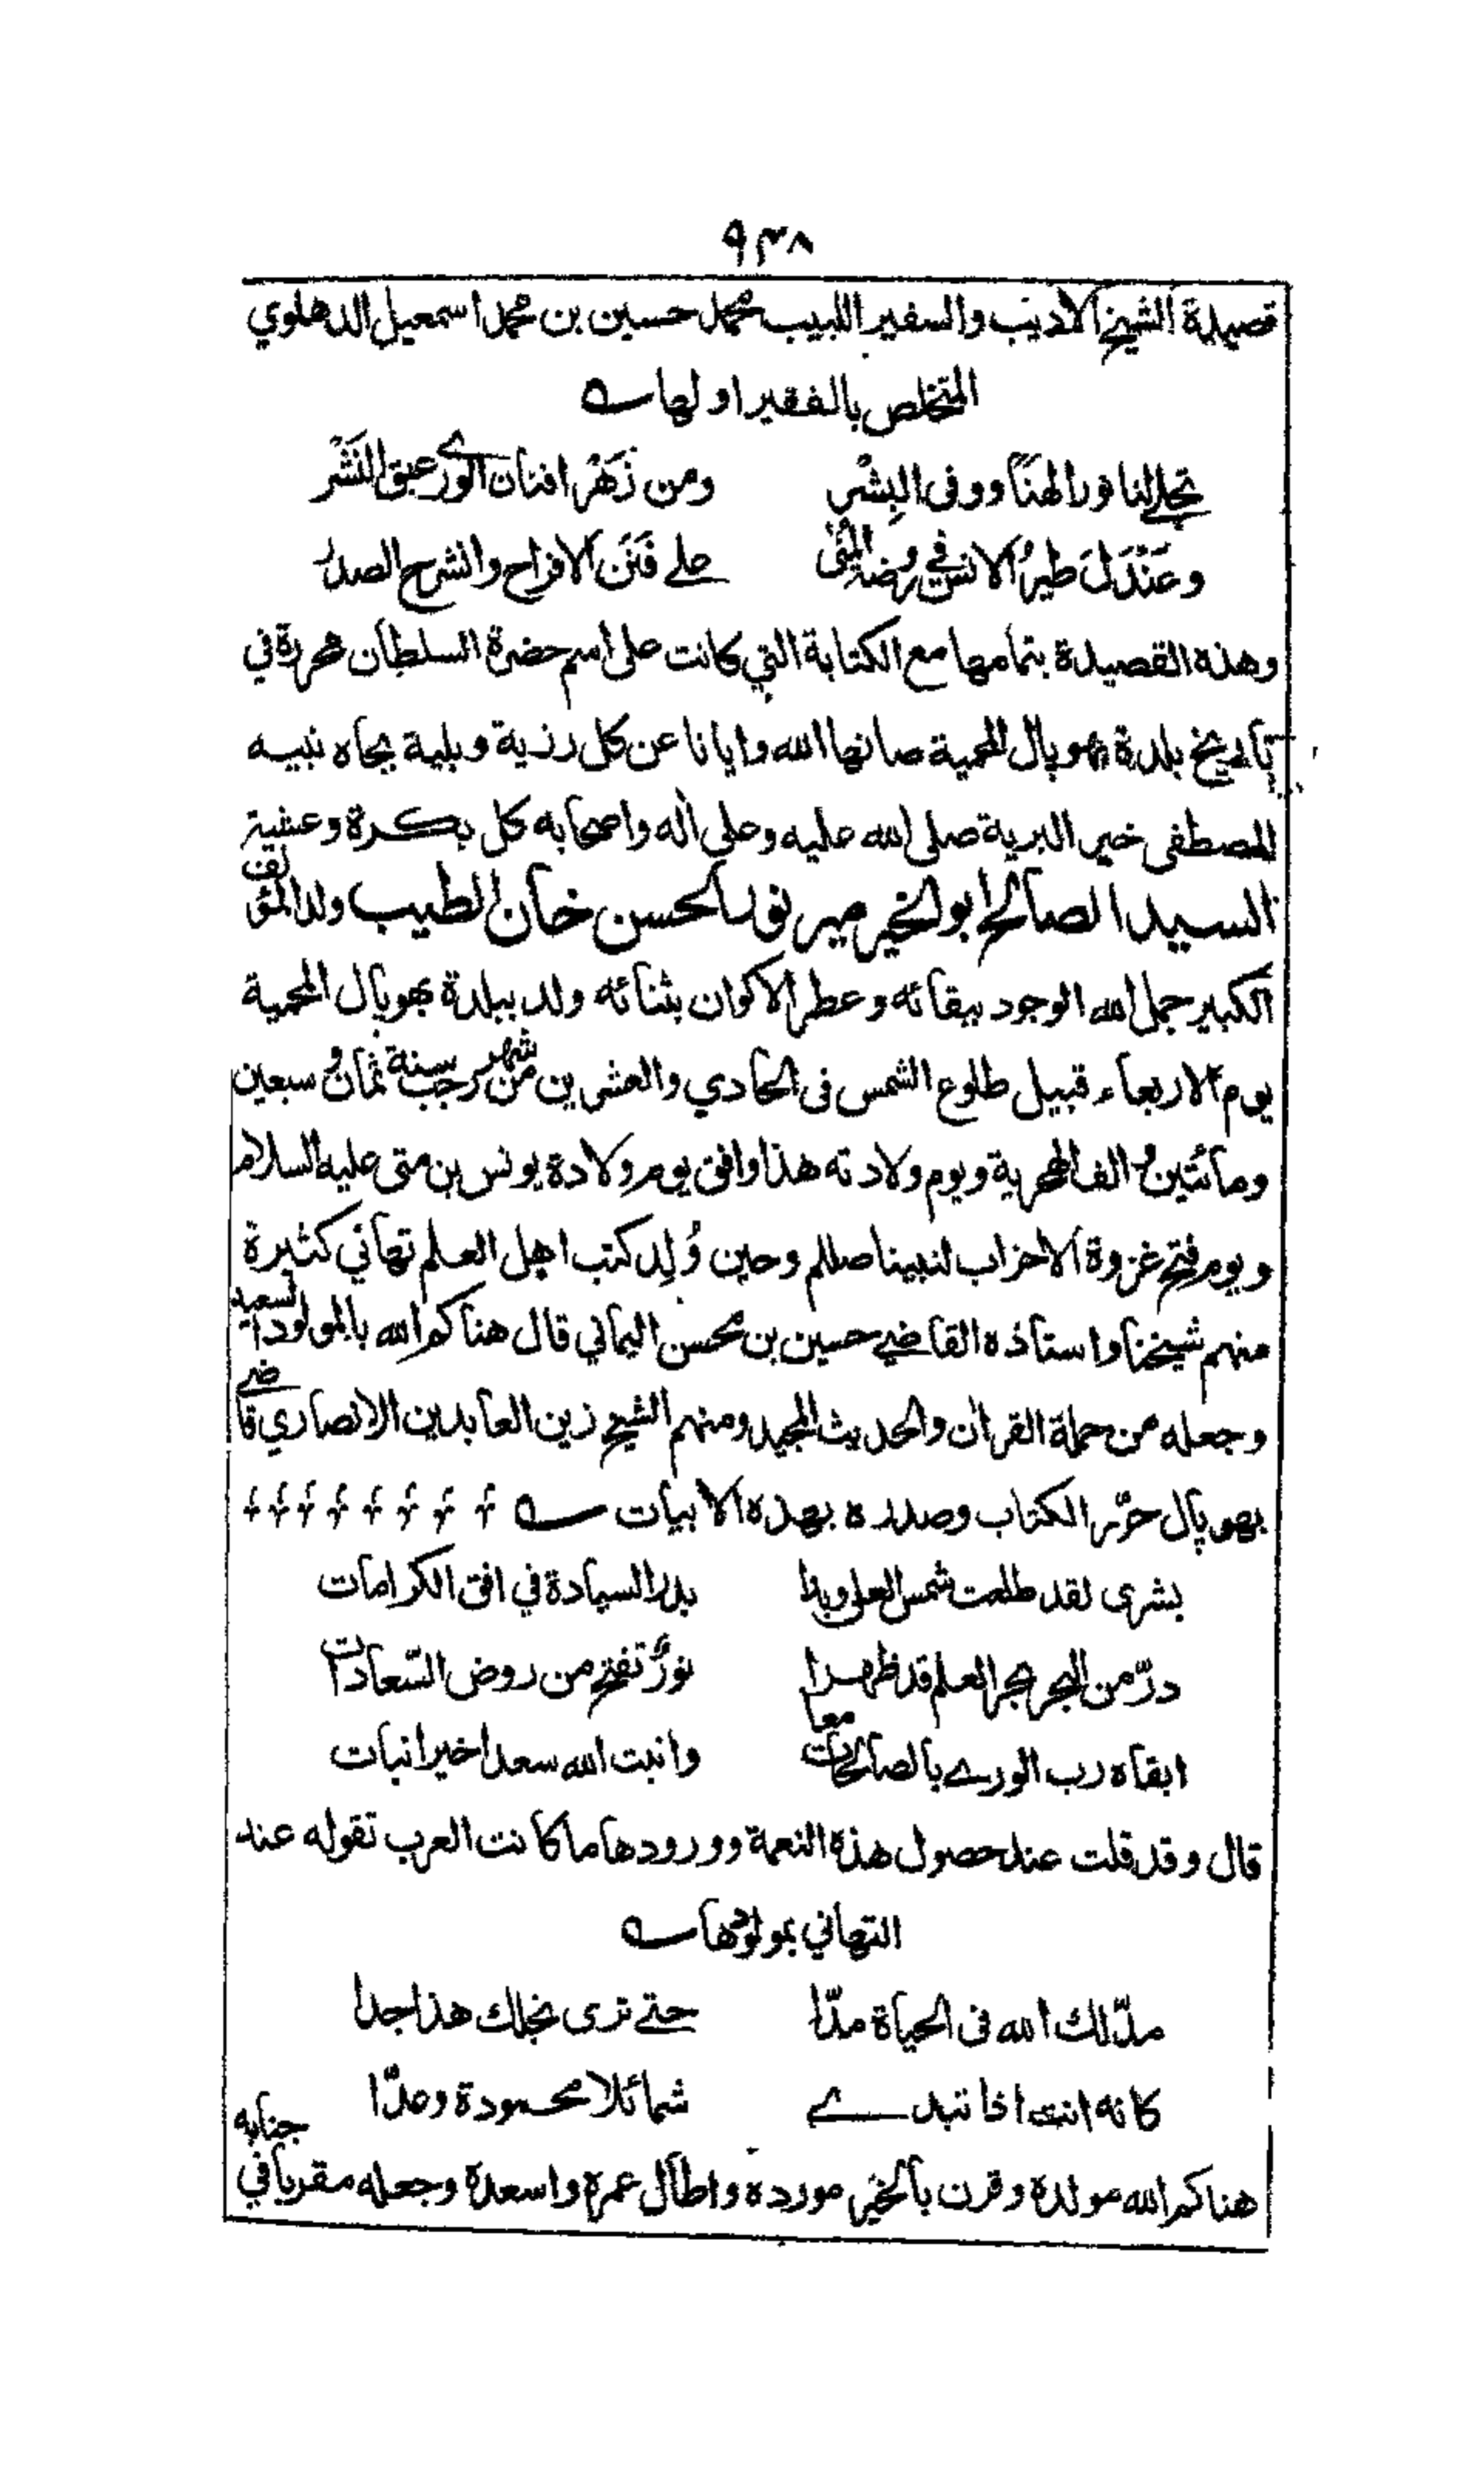 ٩٣٨
قصيدة الشيخ الاديب والسفير اللبيب محمد حسين بن محمد اسمعيل الدهلوي
المتخلص بالفقير اولها ؎
تجلى لنا نور الهنا ووفى البِشْر ومن زَهْر افنان الورى عبق النَشْر
وعَنْدَلَ طيرُ الانس في روضة المُنٰى على فَنَن الافراح وانشرح الصدرُ
وهذه القصيدة بتمامها مع الكتابة التي كانت على اسم حضرة السلطان محررة في
تاريخ بلدة بهوپال المحمية صانها الله وايانا عن كل رزية وبلية بجاه نبيه
المصطفى خير البرية صلى الله عليه وعلى اٰله واصحابه كل بكرة وعشية
السيد الصالح ابو الخير مير نور الحسن خان الطيب ولد المؤلف
الكبير جمل الله الوجود ببقائه وعطر الاكوان بثنائه ولد ببلدة بهوپال المحمية
يوم الاربعاء قبيل طلوع الشمس فى الحادي والعشرين من شهر رجب سنة ثمان و سبعين
ومائتين و الف الهجرية ويوم ولادته هذا وافق يوم ولادة يونس بن متى عليه السلام
ويوم فتح غزوة الاحزاب لنبينا صللم وحين وُلِد كتب اهل العلم تهاني كثيرة
منهم شيخنا واستاذه القاضي حسين بن محسن اليماني قال هناكم الله بالمولود السعيد
وجعله من حملة القراٰن والحديث المجيد ومنهم الشيخ زين العابدين الانصاري قاضي
بهوپال حرّر الكتاب وصدره بهذه الابيات ؎
بشرى لقد طلعت شمس العلى وبدا بدر السيادة في افق الكرامات
درّ من البحر بحر العلم قد ظهرا نورٌ تفتح من روض السّعادات
ابقاه رب الورى بالصالحات معا وانبت الله سعدا خير انبات
قال وقد قلت عند حصول هذه النعمة وورودها ما كانت العرب تقوله عند
التهاني بمولودها ؎
مدّ لك الله فى الحياة مدّا حتى ترى نجلك هذا جدا
كانه انت اذا تبدى شمائلا محمودة وعدّا
هناكم الله مولده وقرن بالخير مورده واطال عمره واسعده وجعله مقربا في جنابه